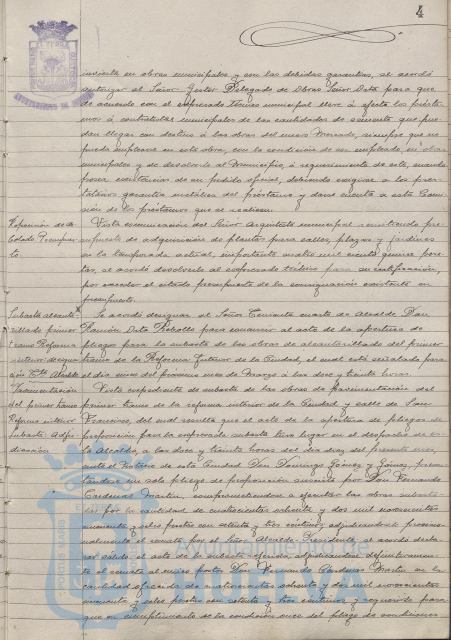 4
invierta en obras municipales y con las debidas garantias, se acordó
autorizar al Señor Gestor Delegado de Obras Señor Data para que
de acuerdo con el expresado técnico municipal lleve á efecto los présta-
mos á contratistas municipales de las cantidades de cemento que pue-
dan llegar con destino á las obras del nuevo Mercado, siempre que no
pueda emplearse en esta obra, con la condición de ser empleado en obras
municipales y de devolverlo al Municipio, á requerimiento de este, cuando
posea existencias de su pedido oficial, debiendo exigirse a los pres-
tatarios garantia metálica del préstamo y darse cuenta a esta Comi-
sión de los préstamos que se realicen.
Vista comunicación del Señor Arquitecto municipal remitiendo pre-
supuesto de adquisición de plantas para calles, plazas y jardines
en la temporada actual, importante mil ciento quince pese-
tas, se acordó devolverlo al expresado técnico para su rectificación,
por exceder el citado presupuesto de la consignación existente en
presupuesto.
Subasta alcanta
rillado primer
tramo Reforma
interior
Se acordó designar al Señor Teniente cuarto de Alcalde Don
Ramón Data para concurrir al acto de la apertura de
pliegos para la subasta de las obras de alcantarillado del primer
tramo de la Reforma Interior de la Ciudad, el cual está señalado para
el dia once del próximo mes de Marzo á las doce y treinta horas.
Pavimentación
del primer tramo
Reforma interior
Subasta Adju-
dicación
Visto expediente de subasta de las obras de pavimentación del
primer tramo de la reforma interior de la Ciudad y calle de San
Francisco, del cual resulta que el acto de la apertura de pliegos de
proposición para la expresada subasta tuvo lugar en el despacho de es-
ta Alcaldia, a las doce y treinta horas del dia diez del presente mes,
ante el Notario de esta Ciudad Don Domingo Gómez y Gómez, presen-
tándose un solo pliego de proposición suscrito por Don Fernando
Cárdenas Martin, comprometiendose a ejecutar las obras subasta-
das por la cantidad de cuatrocientas sesenta y dos mil novecientas
cincuenta y seis pesetas con setenta y tres céntimos y adjudicandose provisio-
nalmente el remate por el Señor Alcalde-Presidente, se acordó decla-
rar válido el acto de la subasta referida, adjudicandose definitivamen-
te el remate al único postor Don Fernando Cárdenas Martin en la
cantidad ofrecida de cuatrocientas sesenta y dos mil novecientas
cincuenta y seis pesetas con setenta y tres céntimos y requerirlo para
que en cumplimiento de la condición once del pliego de condiciones